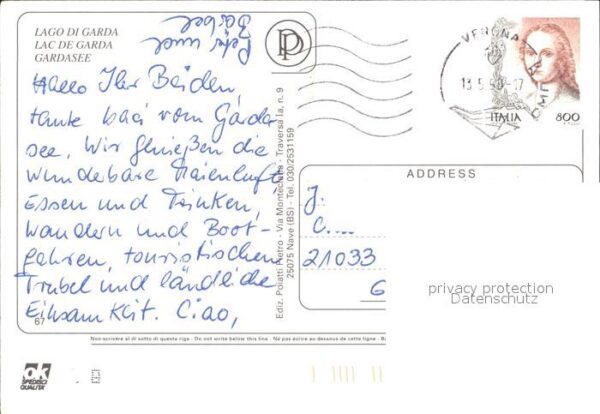 LAGO DI GARDA
LAC DE GARDA
GARDASEE
Hallo Ihr Beiden,
tante baci vom Garda-
see. Wir genießen die
wunderbare Maienluft,
Essen und Trinken,
wandern und Boot-
fahren, touristischen
Trubel und ländliche
Einsamkeit. Ciao,
Bärbel
und
67
ok
SPEDISCI
QUALITA'
Ediz. Poiatti Pietro - Via Monteclana - Traversa Ia, n. 9
25075 Nave (BS) - Tel. 030/2531159
Non scrivere al di sotto di questa riga - Do not write below this line - Ne pas écrire au dessous de cette ligne -
VERONA
13.5.
17
ITALIA
800
ADDRESS
J.
C....
21033
G
privacy protection
Datenschutz